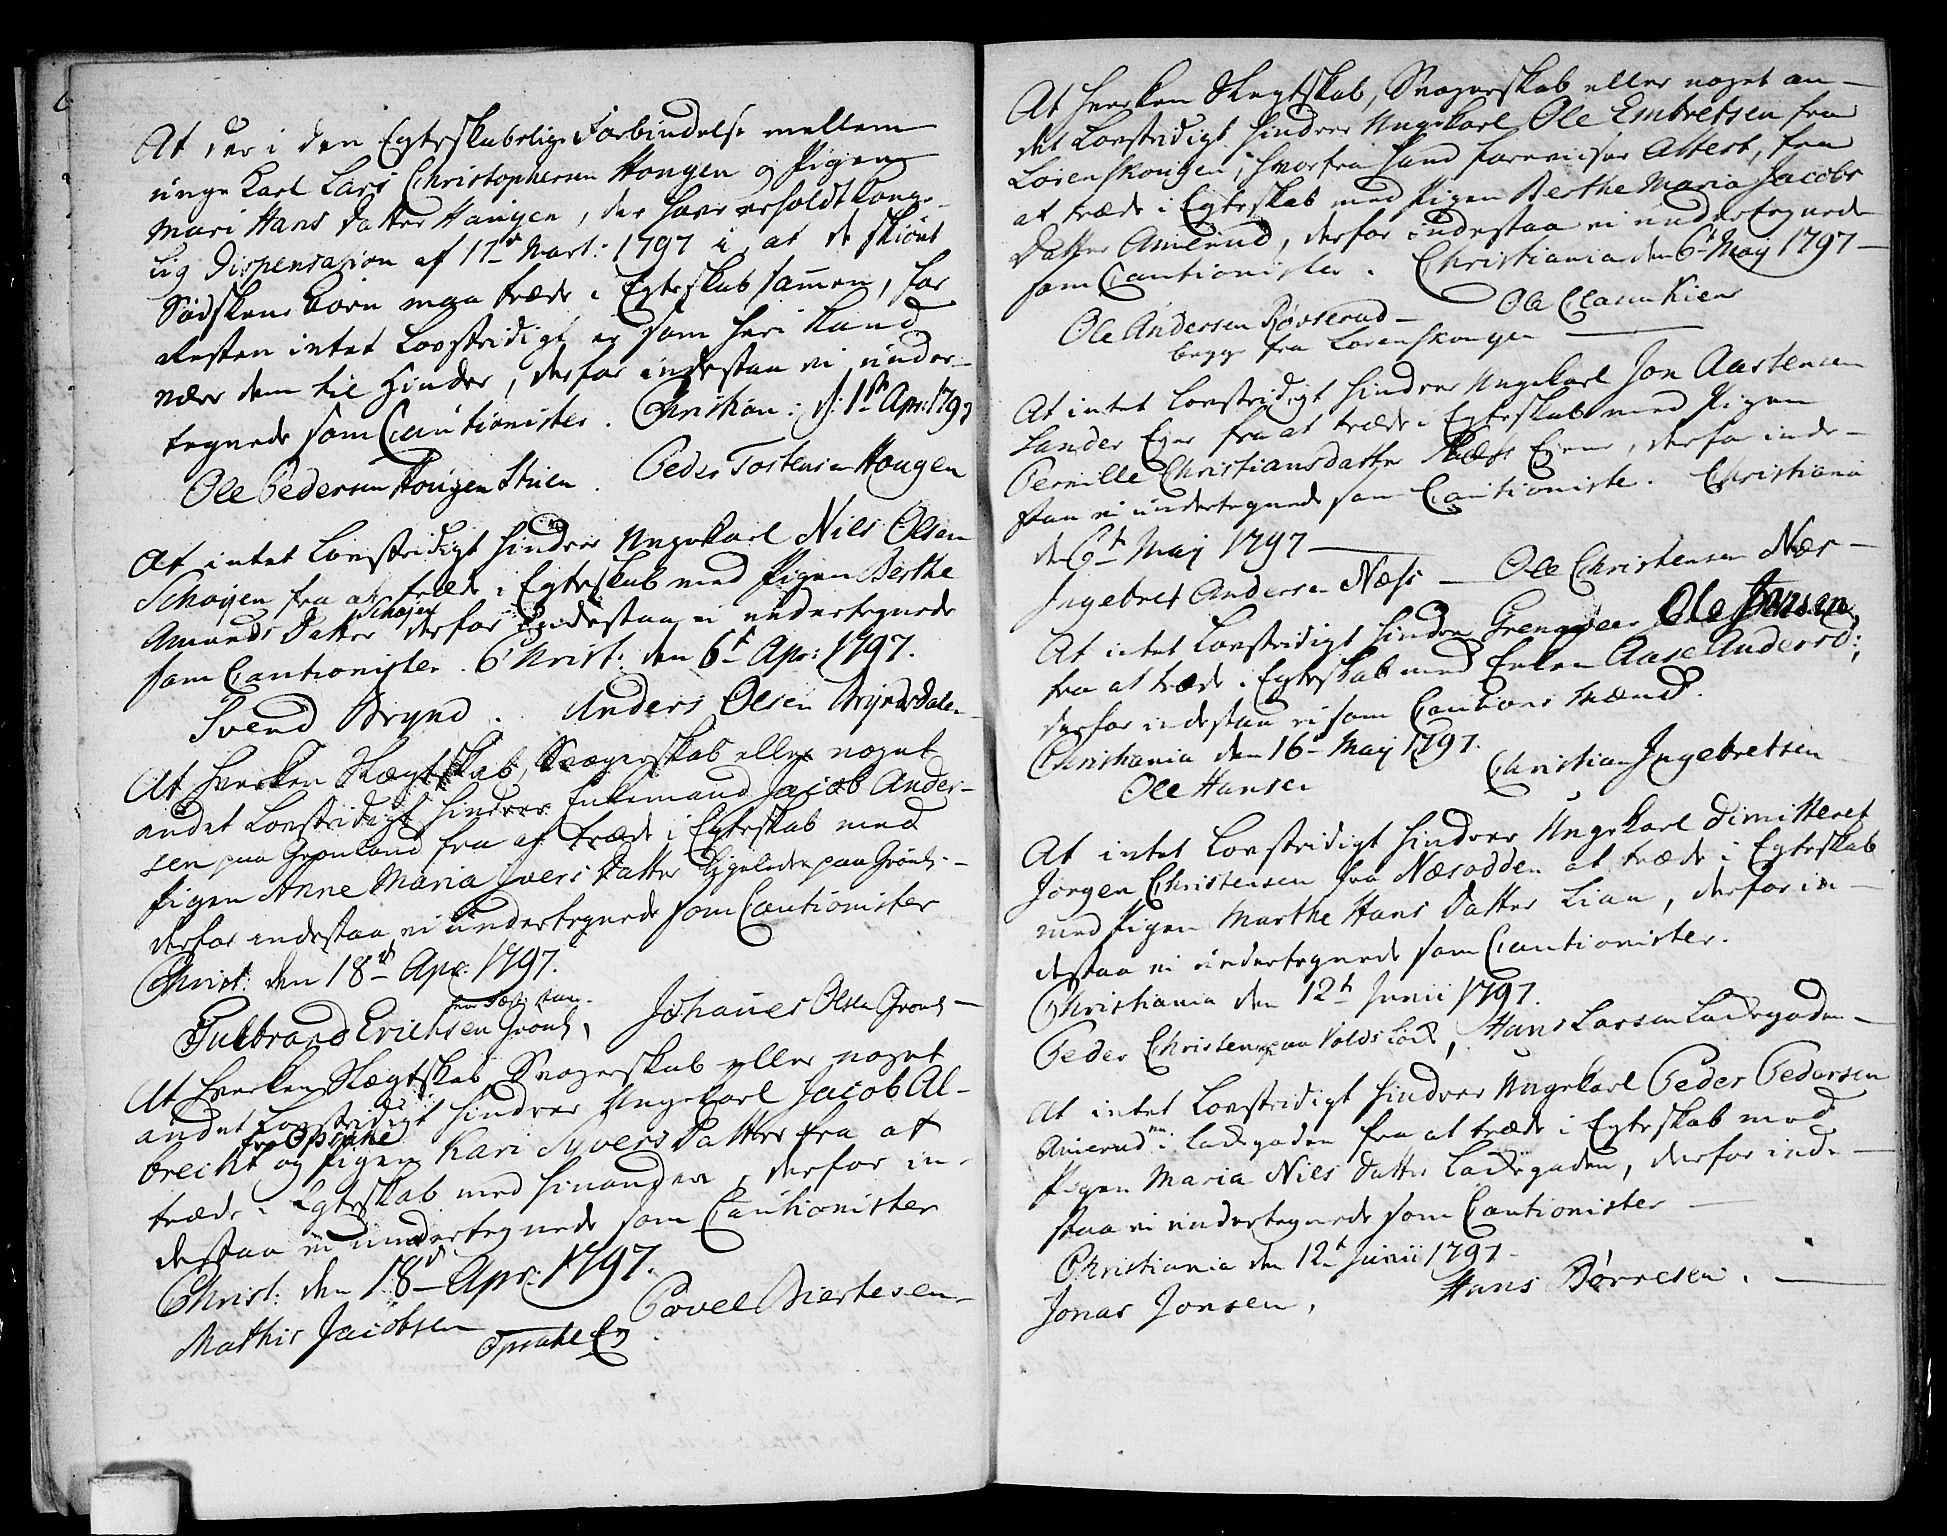 At der i den Egteskabelige Forbindelse mellem
unge Karl Lars Christophersen Hougen og Pigen
Mari Hans Datter Haugen, der have erholdt Konge-
lig Dispensasion af 17de Mart: 1797 at de skiønt
Sødskende Børn maa træde i Egteskab sammen, for
Resten intet Lovstridigt er som heri kand
være dem til Hinder, derfor indestaa vi under-
tegnede som Cautionister. Christian: d: 1ste Apr: 1797
Ole Pedersen Hougen Stuen. Peder Tostensen Hougen
At intet Lovstridigt hindrer Ungekarl Nils Olsen
Schøyen fra at træde i Egteskab med Pigen Berthe
Amunds Datter Schøyen derfor indestaa vi undertegnede
som Cautionister. Christ: den 6t Apr: 1797.
Svend Brynd. Anders Olsen Bryndsdalen
At hverken Slægtskab, Svogerskab eller noget
andet Lovstridigt hindrer Enkemand Jacob Ander-
sen paa Grønland fra at træde i Egteskab med
Pigen Anne Maria Ivers Datter ligeledes paa Grønl:
derfor indestaa vi undertegnede som Cautionister
Christ: den 18de Apr: 1797.
Gulbrand Erichsen Grønl, Johannes Olsen Grønl
At hverken Slægtskab Svogerskab eller noget
andet Lovstridigt hindrer Ungekarl Jacob Al-
brecht og Pigen Kari Syvers Datter fra at
fra Opsahl
træde i Egteskab med hinanden, derfor in-
destaa vi undertegnede som Cautionister
Christ: den 18de Apr: 1797.
Mathis Jacobsen Povel Biertesen
Opsahl Ey
At hverken Slegtskab, Svogerskab eller noget an-
det Lovstridigt hindrer Ungekarl Ole Embretsen fra
Lørenskougen, hvorfra hand foreviiser Attest, fra
at træde i Egteskab med Pigen Berthe Maria Jacobs
Datter Amerud, derfor indestaa vi undertegnede
som Cautionister. Christiania den 6t May 1797
Ole Andersen Røvserud Ole Clausen
begge fra Lørenskougen
At intet Lovstridigt hindrer Ungekarl Jon Aastensen
Sander Eyer fra at træde i Egteskab med Pigen
Pernille Christiansdatter Næss Eyene, derfor inde-
staa vi undertegnede som Cautioniste. Christiania
de 6t Maj 1797
Ingebret Andersen Næss Ole Christensen Næs
At intet Lovstridigt hindrer Ole Jonsen
fra at træde i Egteskab med Enken Aase Andersd:,
derfor indestaa vi som Cautions Mænd.
Christiania den 16 Maj 1797.
Ole Hansen Christian Ingebretsen
At intet Lovstridigt hindrer Ungekarl dimitteret
Jørgen Christensen fra Næsodden at træde i Egteskab
med Pigen Marthe Hans Datter Lian, derfor in-
destaa vi undertegnede som Cautionister.
Christiania den 12t Junii 1797.
Peder Christens paa Volds Løk, Hans Larsen Ladegaden
At intet Lovstridigt hindrer Ungekarl Peder Pedersen
Amerud i Ladegaden fra at træde i Egteskab med
Pigen Maria Nils Datter Ladegaden, derfor inde-
staa vi undertegnede som Cautionister
Christiania den 12t Junii 1797
Jonas Jonsen, Hans Børresen.